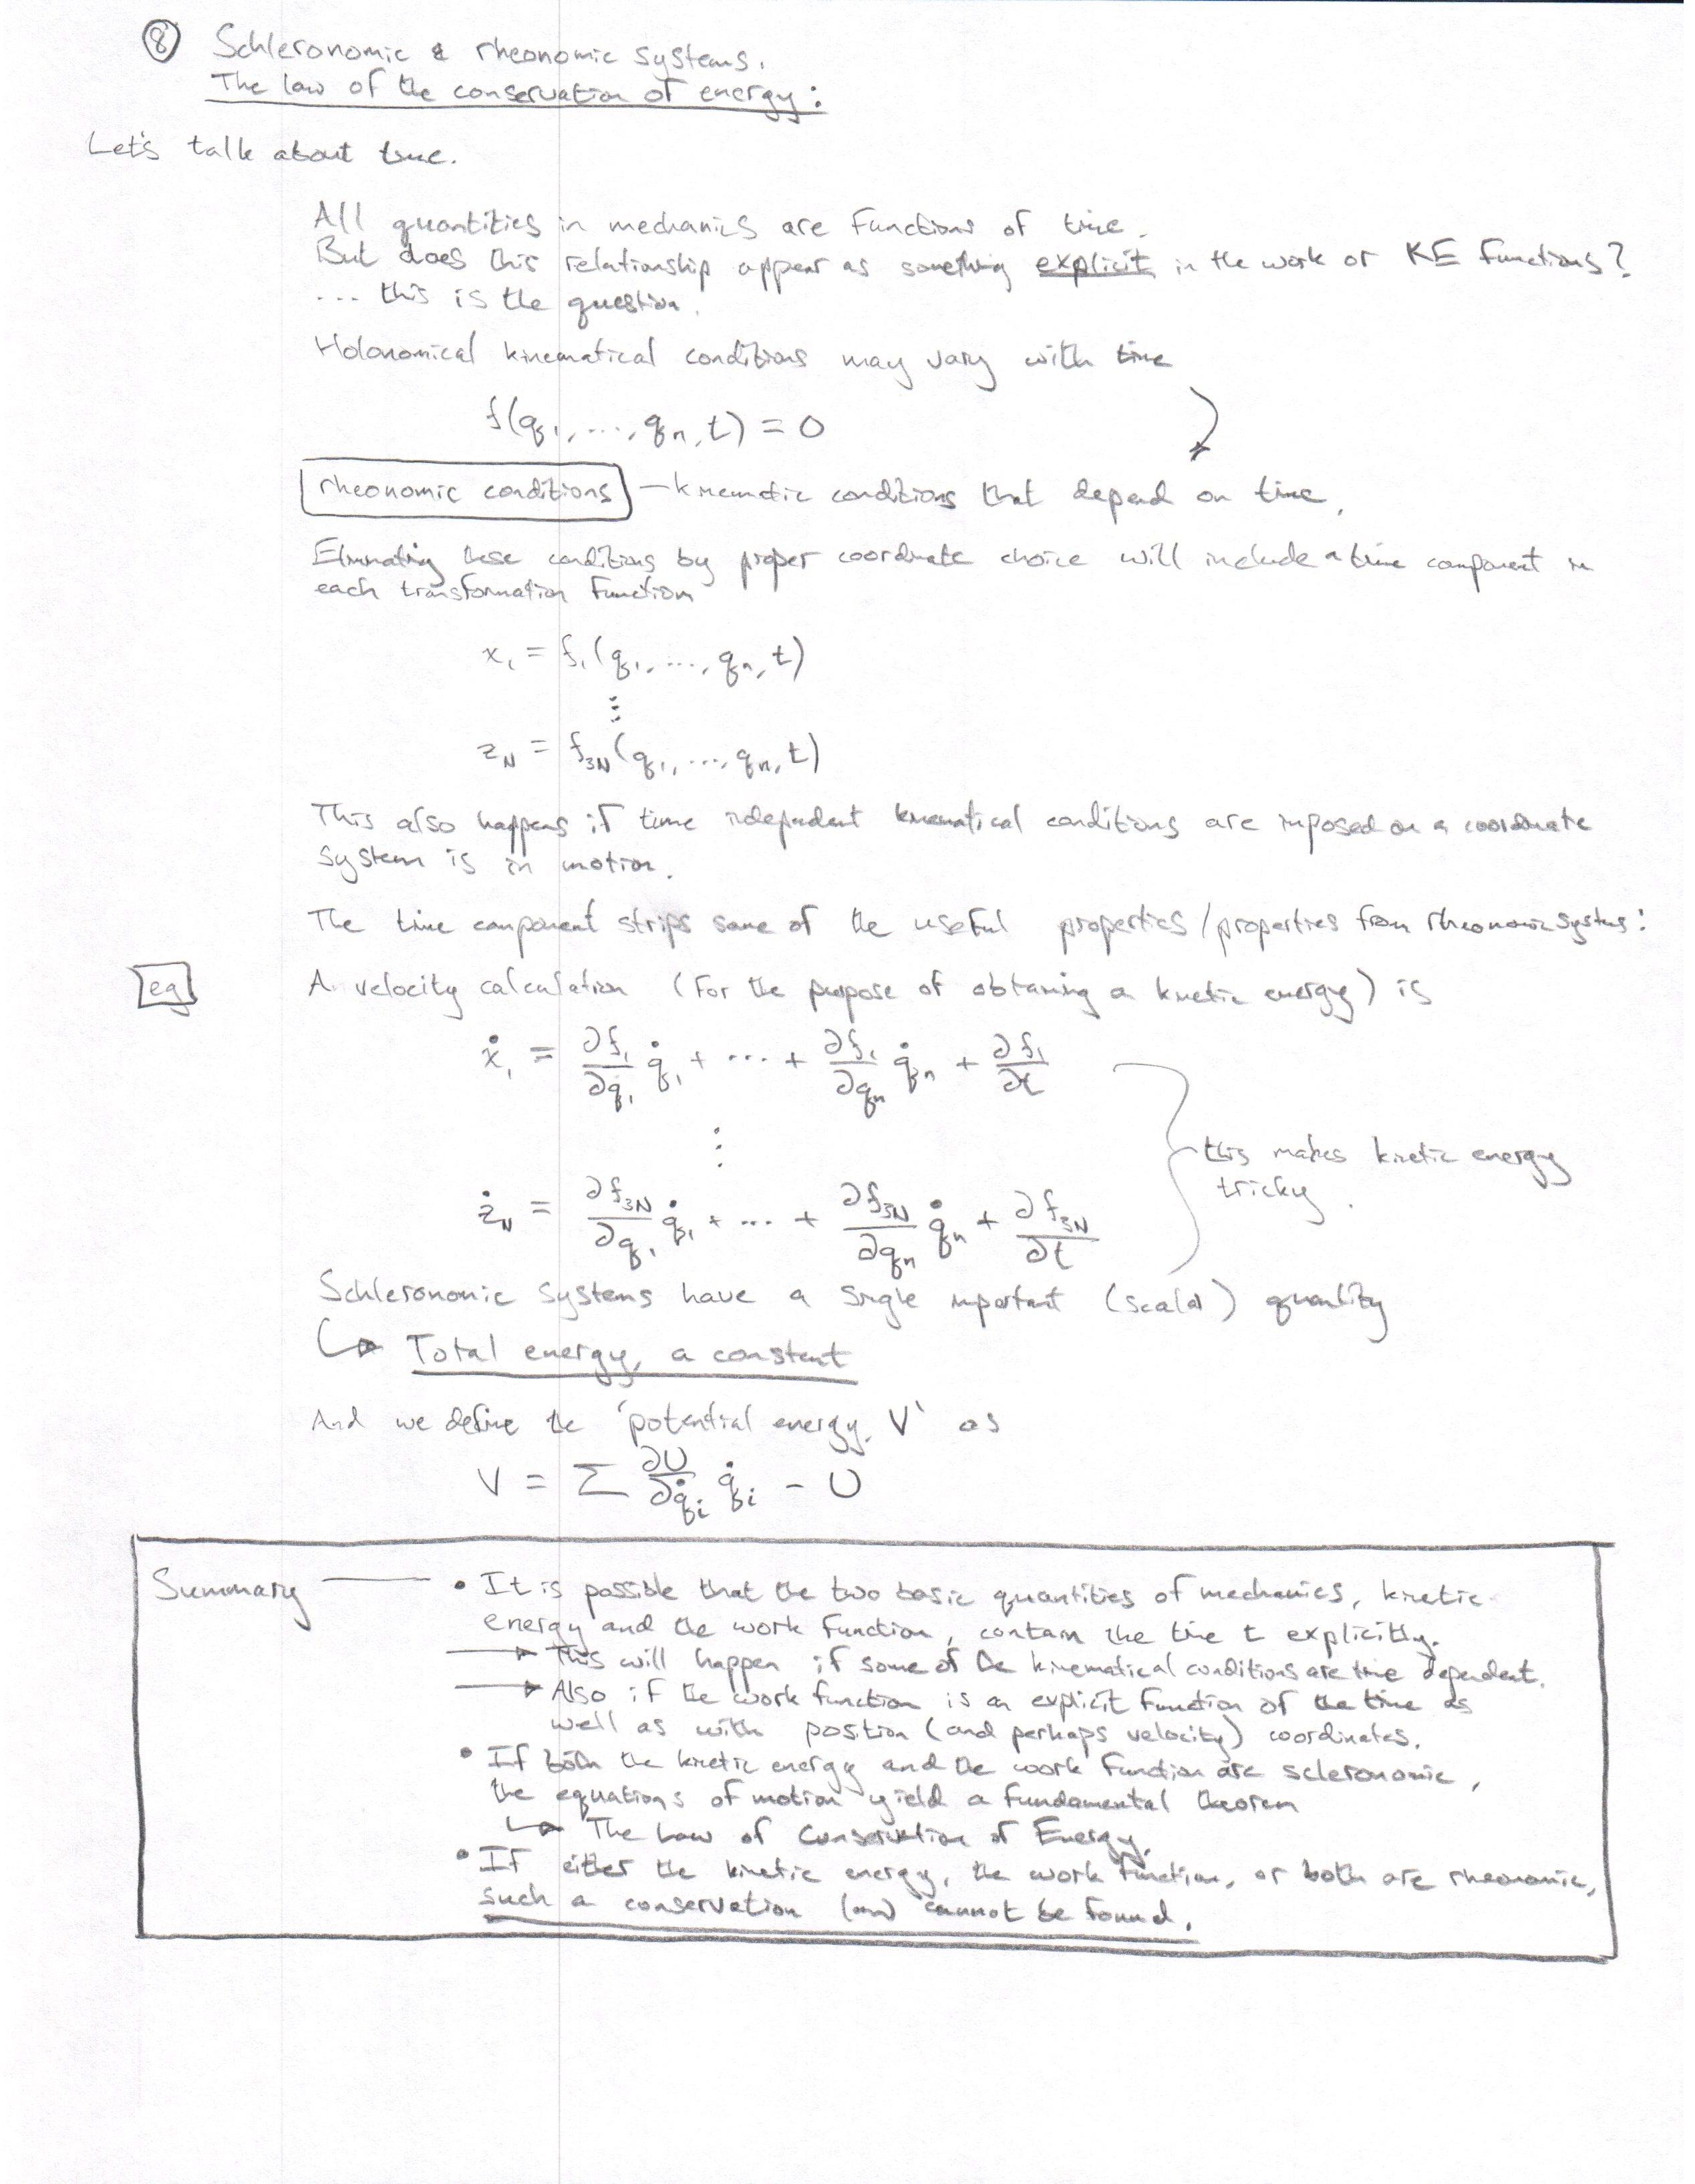 ⑧ Schleronomic & rheonomic systems.
The law of the conservation of energy:
Let's talk about time.
All quantities in mechanics are functions of time.
But does this relationship appear as something explicit in the work or KE functions?
... this is the question.
Holonomical kinematical conditions may vary with time
f(q₁, ..., qₙ, t) = 0
rheonomic conditions — kinematic conditions that depend on time.
Eliminating these conditions by proper coordinate choice will include a time component in
each transformation function
x₁ = f₁(q₁, ..., qₙ, t)
⋮
z_N = f_3N(q₁, ..., qₙ, t)
This also happens if time independent kinematical conditions are imposed on a coordinate
system is in motion.
The time component strips some of the useful properties/properties from rheonomic systems:
eg A velocity calculation (for the purpose of obtaining a kinetic energy) is
ẋ₁ = ∂f₁/∂q₁ q̇₁ + ... + ∂f₁/∂qₙ q̇ₙ + ∂f₁/∂t
⋮
this makes kinetic energy
tricky.
ż_N = ∂f_3N/∂q₁ q̇₁ + ... + ∂f_3N/∂qₙ q̇ₙ + ∂f_3N/∂t
Schleronomic systems have a single important (scalar) quantity
↳ Total energy, a constant
And we define the 'potential energy, V' as
V = Σ ∂U/∂q̇ᵢ q̇ᵢ - U
Summary — • It is possible that the two basic quantities of mechanics, kinetic
energy and the work function, contain the time t explicitly.
→ This will happen if some of the kinematical conditions are time dependent.
→ Also if the work function is an explicit function of the time as
well as with position (and perhaps velocity) coordinates.
• If both the kinetic energy and the work function are scleronomic,
the equations of motion yield a fundamental theorem
↳ The Law of Conservation of Energy.
• If either the kinetic energy, the work function, or both are rheonomic,
such a conservation law cannot be found.